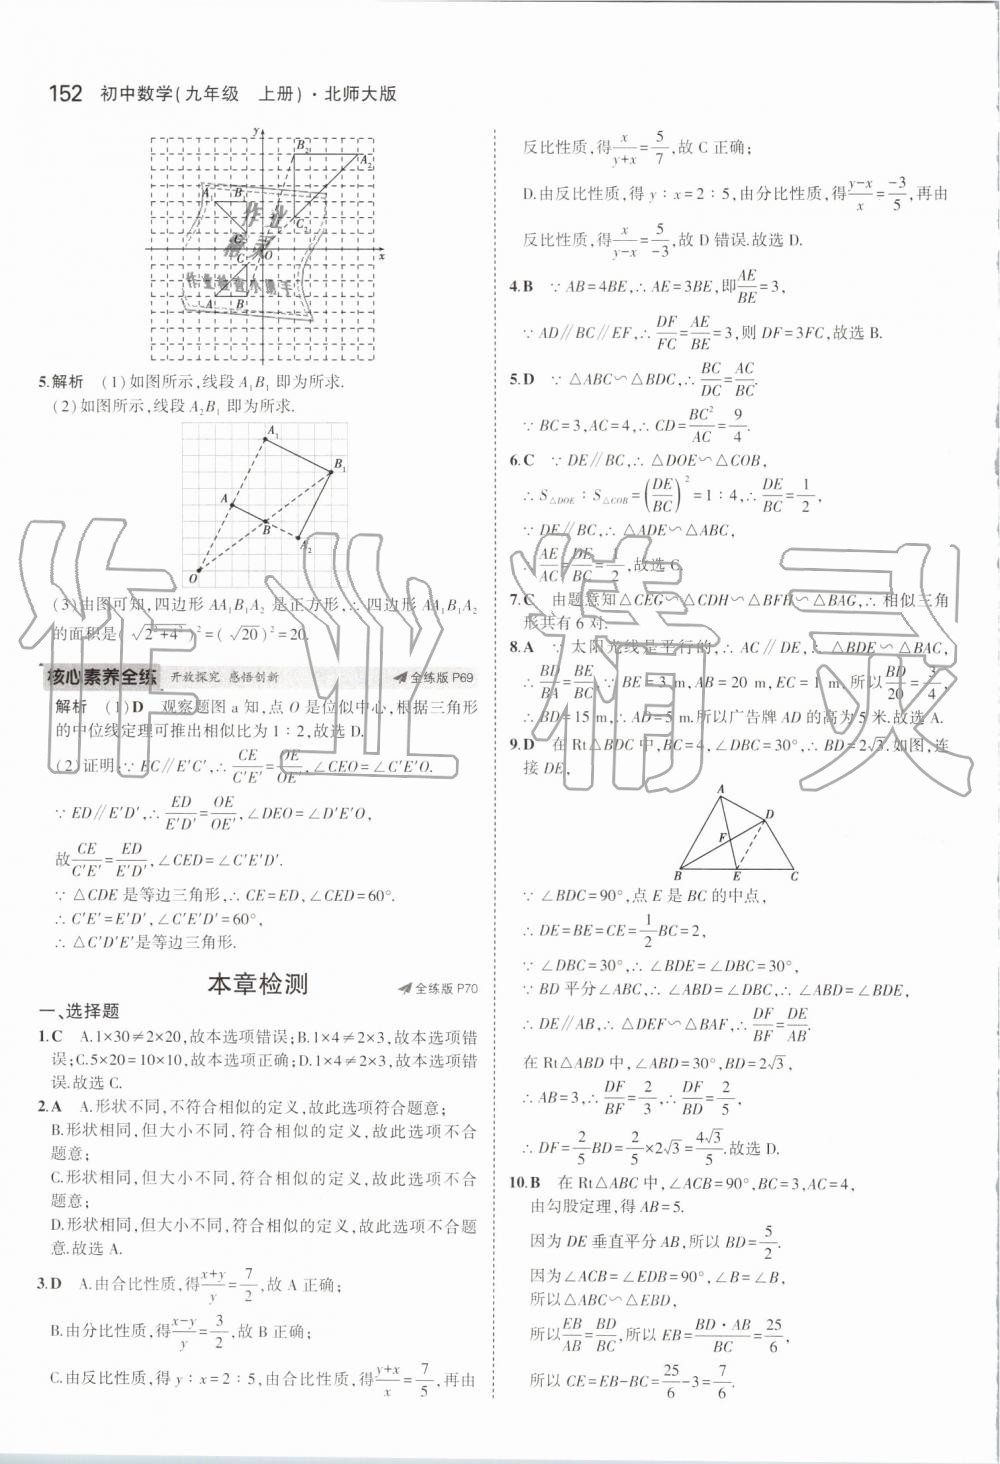 152 初中数学(九年级 上册)·北师大版
y
B₂
A₂
A
B
C₂
C
O
x
C
A₁
B₁
作业
精灵
作业检查小助手
5.解析 (1)如图所示,线段A₁B₁即为所求.
(2)如图所示,线段A₂B₁即为所求.
A₁
B₁
A
B
A₂
O
(3)由图可知,四边形AA₁B₁A₂是正方形,∴四边形AA₁B₁A₂
的面积是(√(2²+4²))²=(√20)²=20.
核心素养全练 开放探究 感悟创新 全练版P69
解析 (1)D 观察题图a知,点O是位似中心,根据三角形
的中位线定理可推出相似比为1∶2,故选D.
(2)证明:∵EC∥E′C′,∴CE/C′E′=OE/OE′,∠CEO=∠C′E′O.
∵ED∥E′D′,∴ED/E′D′=OE/OE′,∠DEO=∠D′E′O,
故CE/C′E′=ED/E′D′,∠CED=∠C′E′D′.
∵△CDE是等边三角形,∴CE=ED,∠CED=60°.
∴C′E′=E′D′,∠C′E′D′=60°,
∴△C′D′E′是等边三角形.
本章检测 全练版P70
一、选择题
1.C A.1×30≠2×20,故本选项错误;B.1×4≠2×3,故本选项错
误;C.5×20=10×10,故本选项正确;D.1×4≠2×3,故本选项错
误.故选C.
2.A A.形状不同,不符合相似的定义,故此选项符合题意;
B.形状相同,但大小不同,符合相似的定义,故此选项不合
题意;
C.形状相同,但大小不同,符合相似的定义,故此选项不合
题意;
D.形状相同,但大小不同,符合相似的定义,故此选项不合题
意.故选A.
3.D A.由合比性质,得(x+y)/y=7/2,故A正确;
B.由分比性质,得(x−y)/y=3/2,故B正确;
C.由反比性质,得y∶x=2∶5,由合比性质,得(y+x)/x=7/5,再由
反比性质,得x/(y+x)=5/7,故C正确;
D.由反比性质,得y∶x=2∶5,由分比性质,得(y−x)/x=−3/5,再由
反比性质,得x/(y−x)=5/−3,故D错误.故选D.
4.B ∵AB=4BE,∴AE=3BE,即AE/BE=3,
∵AD∥BC∥EF,∴DF/FC=AE/BE=3,则DF=3FC,故选B.
5.D ∵△ABC∽△BDC,∴BC/DC=AC/BC.
∵BC=3,AC=4,∴CD=BC²/AC=9/4.
6.C ∵DE∥BC,∴△DOE∽△COB,
∴S△DOE∶S△COB=(DE/BC)²=1∶4,∴DE/BC=1/2,
∵DE∥BC,∴△ADE∽△ABC,
∴AE/AC=DE/BC=1/2,故选C.
7.C 由题意知△CEG∽△CDH∽△BFH∽△BAG,∴相似三角
形共有6对.
8.A ∵太阳光线是平行的,∴AC∥DE,∴△BDE∽△BAC,
∴BD/BA=BE/BC,∵BE=3 m,AB=20 m,EC=1 m,所以BD/20=3/4,
∴BD=15 m,∴AD=5 m.所以广告牌AD的高为5米.故选A.
9.D 在Rt△BDC中,BC=4,∠DBC=30°,∴BD=2√3.如图,连
接DE,
A
D
F
B
E
C
∵∠BDC=90°,点E是BC的中点,
∴DE=BE=CE=1/2BC=2,
∵∠DBC=30°,∴∠BDE=∠DBC=30°,
∵BD平分∠ABC,∴∠ABD=∠DBC,∴∠ABD=∠BDE,
∴DE∥AB,∴△DEF∽△BAF,∴DF/BF=DE/AB.
在Rt△ABD中,∠ABD=30°,BD=2√3,
∴AB=3,∴DF/BF=2/3,∴DF/BD=2/5,
∴DF=2/5BD=2/5×2√3=4√3/5.故选D.
10.B 在Rt△ABC中,∠ACB=90°,BC=3,AC=4,
由勾股定理,得AB=5.
因为DE垂直平分AB,所以BD=5/2.
因为∠ACB=∠EDB=90°,∠B=∠B,
所以△ABC∽△EBD,
所以EB/AB=BD/BC,所以EB=BD·AB/BC=25/6,
所以CE=EB−BC=25/6−3=7/6.
作业精灵